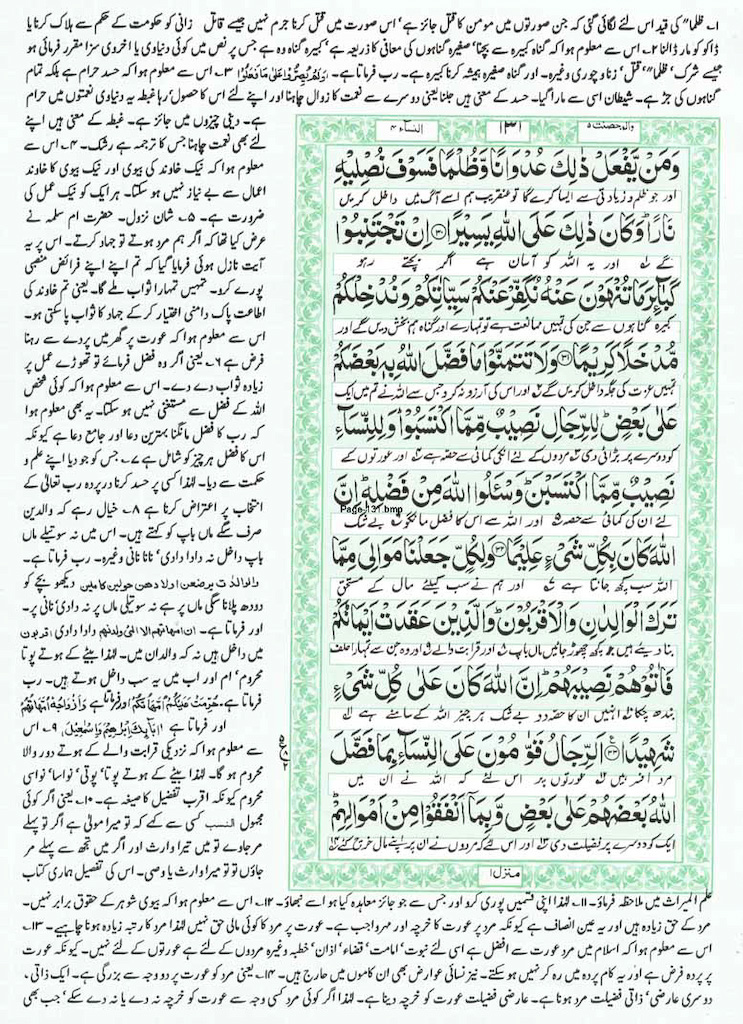 ۱۔ ظلماً“ کی قید اس لئے لگائی گئی کہ جن صورتوں میں مومن کا قتل جائز ہے‘ اس صورت میں قتل کرنا جرم نہیں جیسے قاتل زانی کو حکومت کے حکم سے ہلاک کرنا یا
ڈاکو کو مار ڈالنا ۲۔ اس سے معلوم ہوا کہ گناہ کبیرہ سے بچنا‘ صغیرہ گناہوں کی معافی کا ذریعہ ہے‘ کبیرہ گناہ وہ ہے جس پر نص میں کوئی دنیاوی یا اخروی سزا مقرر فرمائی ہو
جیسے شرک‘ ظلماً“ قتل‘ زنا و چوری وغیرہ۔ اور گناہ صغیرہ ہمیشہ کرنا کبیرہ ہے۔ رب فرماتا ہے۔ وَلَمْ يُصِرُّوْا عَلٰى مَا فَعَلُوْا ۳۔ اس سے معلوم ہوا کہ حسد حرام ہے بلکہ تمام
گناہوں کی جڑ ہے۔ شیطان اسی سے مارا گیا۔ حسد کے معنی ہیں جلنا یعنی دوسرے سے نعمت کا زوال چاہنا اور اپنے لئے اس کا حصول‘ رہا غبطہ یہ دنیاوی نعمتوں میں حرام
والمحصنت ۵ ۱۳۱ النساء ۴
وَمَنْ يَّفْعَلْ ذٰلِكَ عُدْوَانًا وَّظُلْمًا فَسَوْفَ نُصْلِيْهِ
اور جو ظلم و زیادتی سے ایسا کرے گا تو عنقریب ہم اسے آگ میں داخل کریں
نَارًا ؕ وَكَانَ ذٰلِكَ عَلَى اللّٰهِ يَسِيْرًا ۝۳۰ اِنْ تَجْتَنِبُوْا
گے اور یہ اللہ کو آسان ہے اگر بچتے رہو
كَبَآئِرَ مَا تُنْهَوْنَ عَنْهُ نُكَفِّرْ عَنْكُمْ سَيِّاٰتِكُمْ وَنُدْخِلْكُمْ
کبیرہ گناہوں سے جن کی تمہیں ممانعت ہے تو تمہارے اور گناہ ہم بخش دیں گے اور
مُّدْخَلًا كَرِيْمًا ۝۳۱ وَلَا تَتَمَنَّوْا مَا فَضَّلَ اللّٰهُ بِهٖ بَعْضَكُمْ
تمہیں عزت کی جگہ داخل کریں گے اور اس کی آرزو نہ کرو جس سے اللہ نے تم میں ایک
عَلٰى بَعْضٍ ؕ لِلرِّجَالِ نَصِيْبٌ مِّمَّا اكْتَسَبُوْا ؕ وَلِلنِّسَآءِ
کو دوسرے پر بڑائی دی مردوں کے لئے انکی کمائی سے حصہ ہے اور عورتوں کے
نَصِيْبٌ مِّمَّا اكْتَسَبْنَ ؕ وَسْـَٔلُوا اللّٰهَ مِنْ فَضْلِهٖ ؕ اِنَّ
Page-131.bmp
لئے ان کی کمائی سے حصہ اور اللہ سے اس کا فضل مانگو بے شک
اللّٰهَ كَانَ بِكُلِّ شَيْءٍ عَلِيْمًا ۝۳۲ وَلِكُلٍّ جَعَلْنَا مَوَالِيَ مِمَّا
اللہ سب کچھ جانتا ہے اور ہم نے سب کیلئے مال کے مستحق
تَرَكَ الْوَالِدٰنِ وَالْاَقْرَبُوْنَ ؕ وَالَّذِيْنَ عَقَدَتْ اَيْمَانُكُمْ
بنا دیئے ہیں جو کچھ چھوڑ جائیں ماں باپ اور قرابت والے اور وہ جن سے تمہارا حلف
فَاٰتُوْهُمْ نَصِيْبَهُمْ ؕ اِنَّ اللّٰهَ كَانَ عَلٰى كُلِّ شَيْءٍ
بندھ چکا انہیں ان کا حصہ دو بے شک ہر چیز اللہ کے سامنے ہے
شَهِيْدًا ۝۳۳ اَلرِّجَالُ قَوّٰمُوْنَ عَلَى النِّسَآءِ بِمَا فَضَّلَ
مرد افسر ہیں عورتوں پر اس لئے کہ اللہ نے ان میں
اللّٰهُ بَعْضَهُمْ عَلٰى بَعْضٍ وَّبِمَاۤ اَنْفَقُوْا مِنْ اَمْوَالِهِمْ ؕ
ایک کو دوسرے پر فضیلت دی اور اس لئے کہ مردوں نے ان پر اپنے مال خرچ کئے
منزل ۱
ہے۔ دینی چیزوں میں جائز ہے۔ غبطہ کے معنی ہیں اپنے
لئے بھی نعمت چاہنا جس کا ترجمہ ہے رشک۔ ۴۔ اس سے
معلوم ہوا کہ نیک خاوند کی بیوی اور نیک بیوی کا خاوند
اعمال سے بے نیاز نہیں ہو سکتا۔ ہر ایک کو نیک عمل کی
ضرورت ہے۔ ۵۔ شان نزول۔ حضرت ام سلمہ نے
عرض کیا تھا کہ اگر ہم مرد ہوتے تو جہاد کرتے۔ اس پر یہ
آیت نازل ہوئی فرمایا گیا کہ تم اپنے اپنے فرائض منصبی
پورے کرو۔ تمہیں تمہارا ثواب ملے گا۔ یعنی تم خاوند کی
اطاعت پاک دامنی اختیار کر کے جہاد کا ثواب پا سکتی ہو۔
اس سے معلوم ہوا کہ عورت پر گھر میں پردے سے رہنا
فرض ہے ۶۔ یعنی اگر وہ فضل فرمائے تو تھوڑے عمل پر
زیادہ ثواب دے دے۔ اس سے معلوم ہوا کہ کوئی شخص
اللہ کے فضل سے مستغنی نہیں ہو سکتا۔ یہ بھی معلوم ہوا
کہ رب کا فضل مانگنا بہترین دعا اور جامع دعا ہے کیونکہ
اس کا فضل ہر چیز کو شامل ہے ۷۔ جس کو جو دیا اپنے علم و
حکمت سے دیا۔ لہذا کسی پر حسد کرنا در پردہ رب تعالیٰ کے
انتخاب پر اعتراض کرنا ہے ۸۔ خیال رہے کہ والدین
صرف سگے ماں باپ کو کہتے ہیں۔ اس میں نہ سوتیلے ماں
باپ داخل نہ دادا دادی‘ نانا نانی وغیرہ۔ رب فرماتا ہے۔
والوالدٰت یرضعن اولادھن حولین کاملین دیکھو بچے کو
دودھ پلانا سگی ماں پر ہے نہ سوتیلی ماں پر نہ دادی‘ نانی پر۔
اور فرماتا ہے۔ ان امھاتھم الا الئی ولدنھم دادا دادی اقربون
میں داخل ہیں نہ کہ والدان میں۔ لہذا بیٹے کے ہوتے پوتا
محروم‘ ام اور اب میں یہ سب داخل ہوتے ہیں۔ رب
فرماتا ہے۔ حُرِّمَتْ عَلَيْكُمْ اُمَّهَاتُكُمْ اور فرماتا ہے وَاَزْوَاجُهٗ اُمَّهَاتُهُمْ
اور فرماتا ہے اٰبَآئِكَ اِبْرٰهِيْمَ وَاِسْمٰعِيْلَ۔ ۹۔ اس
سے معلوم ہوا کہ نزدیکی قرابت والے کے ہوتے دور والا
محروم ہو گا۔ لہذا بیٹے کے ہوتے پوتا‘ پوتی‘ نواسا‘ نواسی
محروم کیونکہ اقرب تفضیل کا صیغہ ہے۔ ۱۰۔ یعنی اگر کوئی
مجہول النسب کسی سے کہے کہ تو میرا مولیٰ ہے اگر تو پہلے
مر جاوے تو میں تیرا وارث اور اگر میں تجھ سے پہلے مر
جاؤں تو تو میرا وارث یا وصی۔ اس کی تفصیل ہماری کتاب
علم المیراث میں ملاحظہ فرماؤ۔ ۱۱۔ لہذا اپنی قسمیں پوری کرو اور جس سے جو جائز معاہدہ کیا ہو اسے نبھاؤ۔ ۱۲۔ اس سے معلوم ہوا کہ بیوی شوہر کے حقوق برابر نہیں۔
مرد کے حق زیادہ ہیں اور یہ عین انصاف ہے کیونکہ مرد پر عورت کا خرچہ اور مہر واجب ہے۔ عورت پر مرد کا کوئی مالی حق نہیں لہذا مرد کا رتبہ زیادہ ہونا چاہیے۔ ۱۳۔
اس سے معلوم ہوا کہ اسلام میں مرد عورت سے افضل ہے اسی لئے نبوت‘ امامت‘ قضاء‘ اذان‘ خطبہ وغیرہ مردوں کے لئے ہے عورتوں کے لئے نہیں۔ کیونکہ عورت
پر پردہ فرض ہے اور یہ کام پردہ میں رہ کر نہیں ہو سکتے۔ نیز نسائی عوارض بھی ان کاموں میں حارج ہیں۔ ۱۴۔ یعنی مرد کو عورت پر دو وجہ سے بزرگی ہے۔ ایک ذاتی‘
دوسری عارضی‘ ذاتی فضیلت مرد ہونا ہے۔ عارضی فضیلت عورت کو خرچہ دینا ہے۔ لہذا اگر کوئی مرد کسی وجہ سے عورت کو خرچہ نہ دے یا نہ دے سکے‘ جب بھی